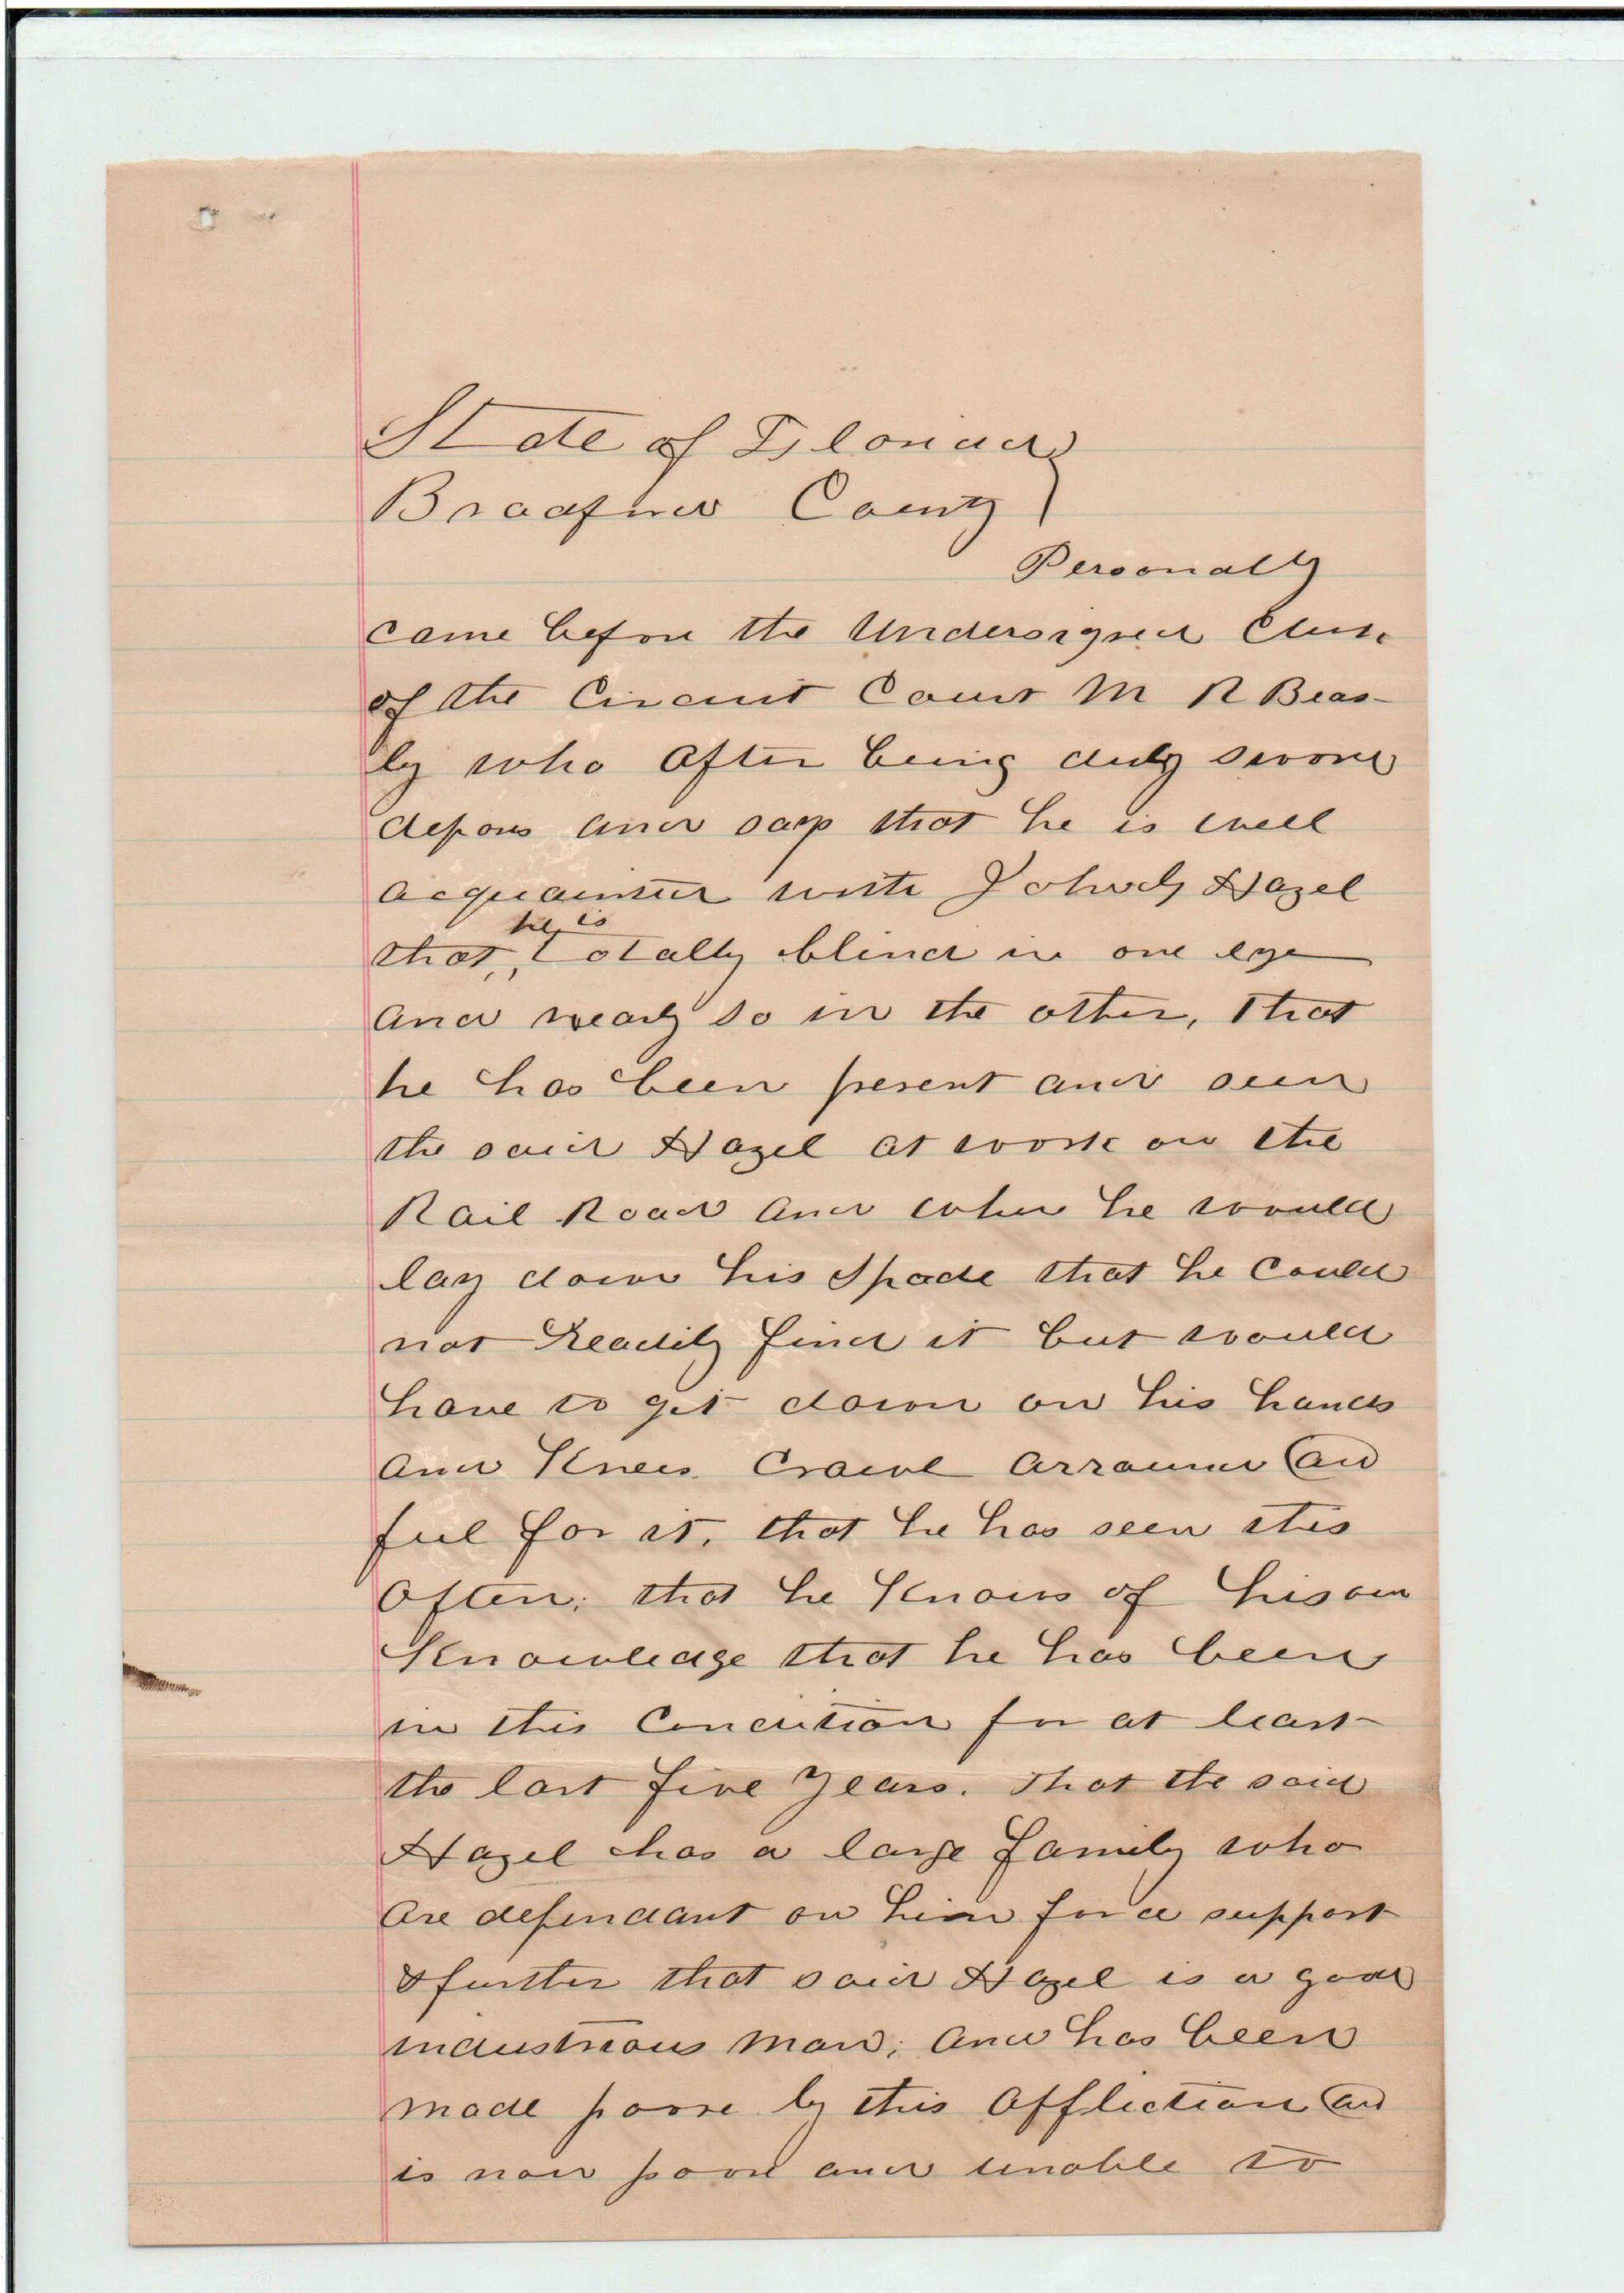 State of Florida }
Bradford County }
Personally
came before the Undersigned Clerk
of the Circuit Court M R Beas-
ly who after being duly sworn
depous and says that he is well
acquainted with John Hazel
that, he is totally blind in one eye
and nearly so in the other, That
he has been present and seen
the said Hazel at work on the
Rail Road and when he would
lay down his Spade that he could
not Readily find it but would
have to get down on his hands
and Knees Crawl arround and
feel for it, that he has seen this
often; that he Knows of his own
Knowledge that he has been
in this Condition for at least
the last five years. That the said
Hazel has a large family who
are dependant on him for a support
& further that said Hazel is a good
industrious man; and has been
made poore by this affliction and
is now poore and unable to